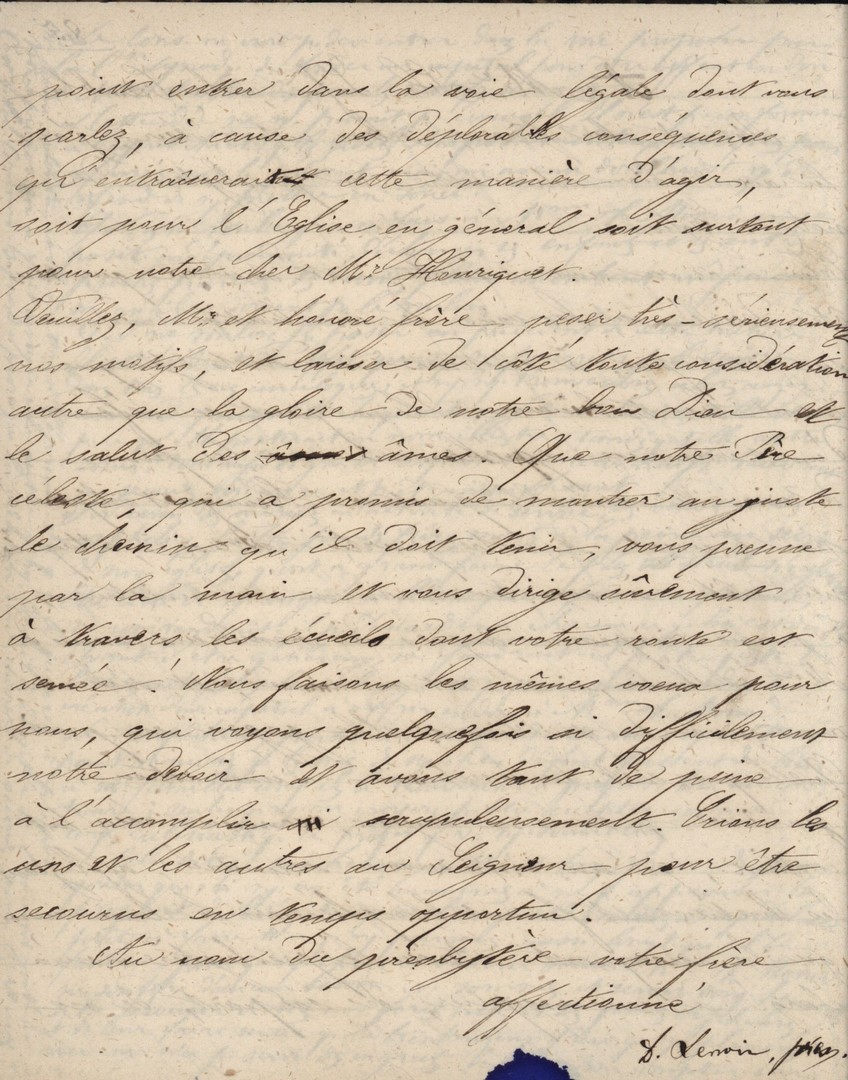 point entrer dans la voie légale dont vous
parlez, à cause des déplorables conséquences
qu'entraînerait cette manière d'agir,
soit pour l'Eglise en général soit surtout
pour notre cher Mr Henriquet.
Veuillez, Mr et honoré frère peser très-sérieusement
nos motifs, et laisser de côté toute considération
autre que la gloire de notre bon Dieu et
le salut des âmes. Que notre Père
céleste, qui a promis de montrer au juste
le chemin qu'il doit tenir, vous prenne
par la main et vous dirige sûrement
à travers les écueils dont votre route est
semée! Nous faisons les mêmes voeux pour
nous, qui voyons quelquefois si difficilement
notre devoir et avons tant de peine
à l'accomplir scrupuleusement. Crions les
uns et les autres au Seigneur pour être
secourus en temps opportun.
Au nom du presbytère votre frère
affectionné
D. Lenoir,